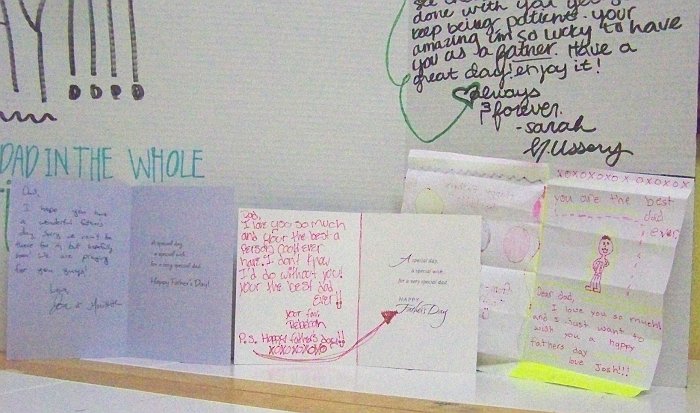 AY!!!!
done with you
keep being patients. your
amazing i'm so lucky to have
you as a father. Have a
great day! enjoy it!
always
& forever.
-sarah
DAD IN THE WHOLE
Dad,
I hope you have
a wonderful father's
day. Sorry we can't be
there for it but hopefully
soon! We are praying
for you guys!
Love,
A special day,
a special wish
for a very special dad
Happy Father's Day!
Dad,
I love you so much
and your the best a
person could ever
have. I don't know
I'd do without you!
Your the best dad
Ever!!
Your fav,
Rebekah
P.s. Happy father's day!!
XOXOXOXO
A special day,
a special wish,
for a very special dad.
HAPPY
Father's Day
XOXOXOXO X OXOXOX
you are the best
dad
ever
Dear dad,
I love you so much
and I Just want to
wish you a happy
fathers day
love Josh!!!